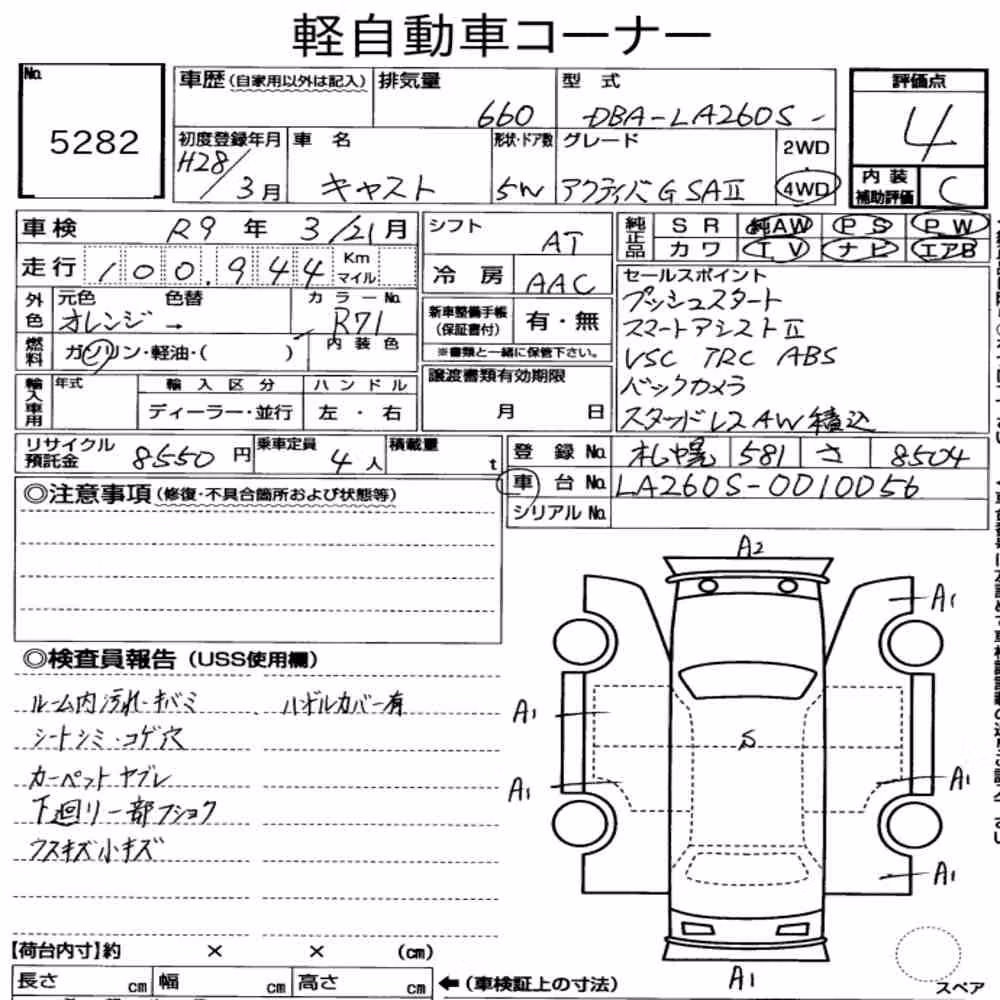 軽自動車コーナー
No. 5282
車歴(自家用以外は記入) 排気量 660 型式 DBA-LA260S
初度登録年月 H28/3月 車名 キャスト 形状・ドア数 5W グレード アクティバG SAⅡ 2WD 4WD
評価点 4
内装補助評価 C
車検 R9年 3/21月
走行 100,944 Km マイル
外色 元色 オレンジ → 色替 カラーNo. R71
燃料 ガソリン・軽油・( ) 内装色
輸入車用 年式 輸入区分 ディーラー・並行 ハンドル 左・右
シフト AT
冷房 AAC
新車整備手帳(保証書付) 有・無
※書類と一緒に保管下さい。
譲渡書類有効期限 月 日
純正品 SR 純AW PS PW
カワ TV ナビ エアB
セールスポイント
プッシュスタート
スマートアシストⅡ
VSC TRC ABS
バックカメラ
スタッドレスAW積込
リサイクル預託金 8550円 乗車定員 4人 積載量 t
登録No. 札幌 581 さ 8504
車台No. LA260S-0010056
シリアルNo.
◎注意事項(修復・不具合箇所および状態等)
◎検査員報告(USS使用欄)
ルーム内汚れ・キバミ ハンドルカバー有
シートシミ・コゲ穴
カーペットヤブレ
下廻り一部フショク
ウスキズ小キズ
A2
A1
A1
S
A1
A1
A1
A1
スペア
【荷台内寸】約 × × (cm)
長さ cm 幅 cm 高さ cm ←(車検証上の寸法)